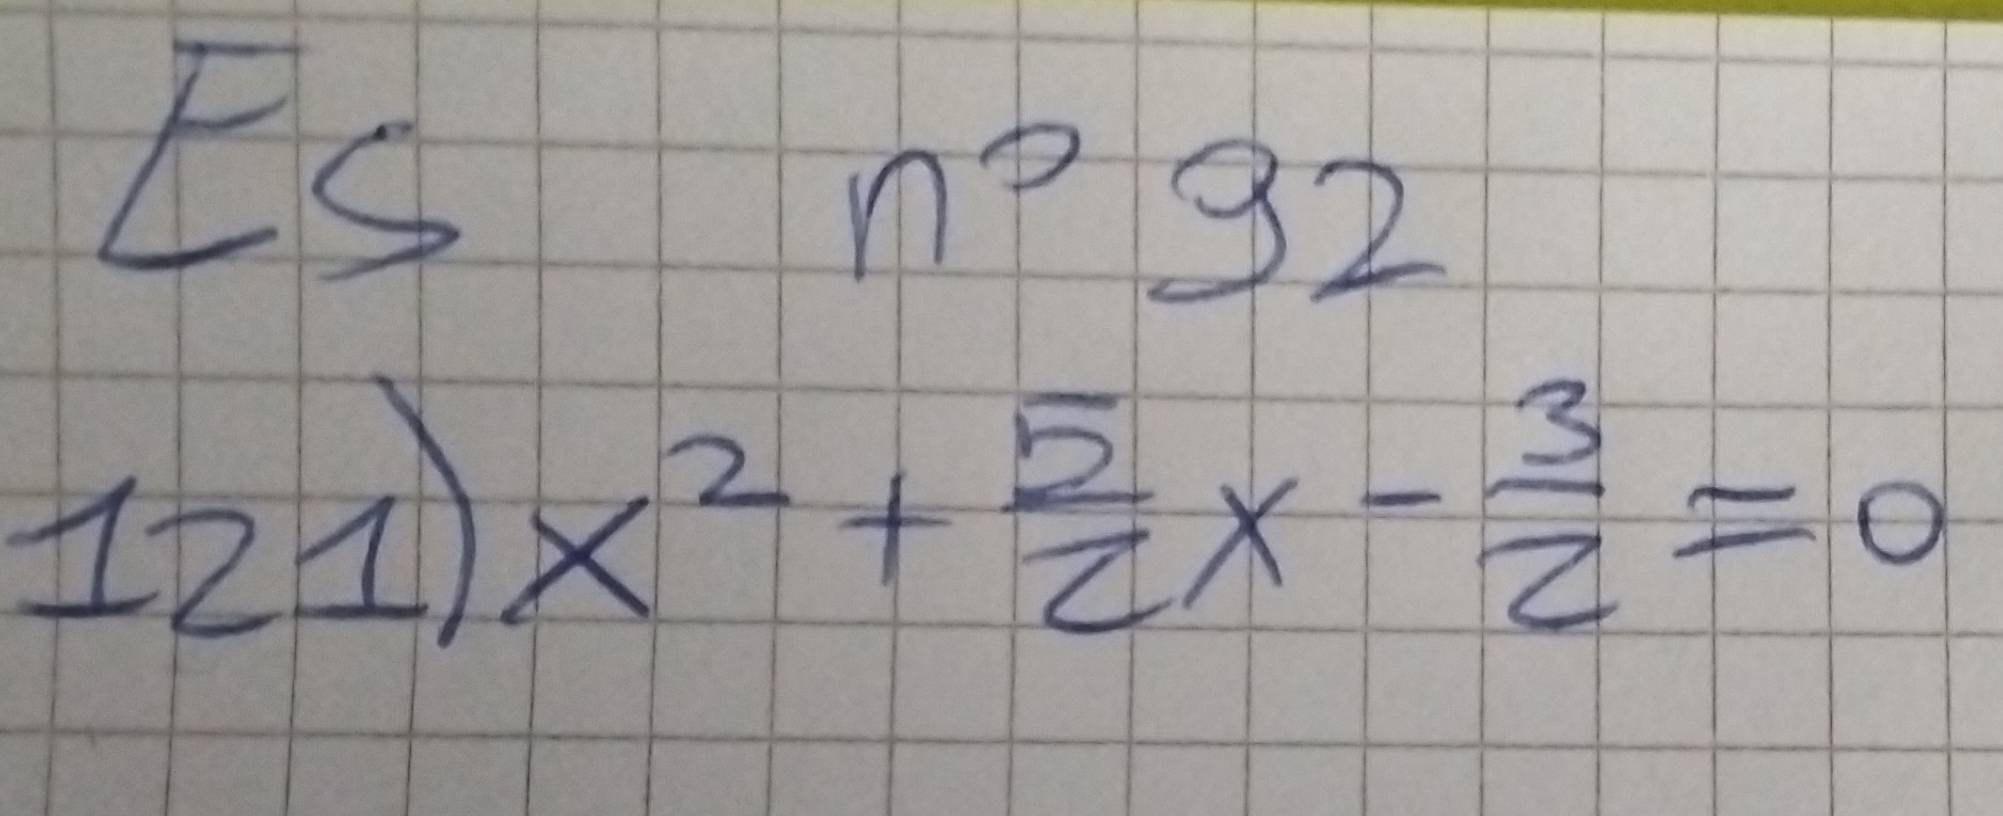 Es n° 92
121) x² + 5/2 x - 3/2 = 0